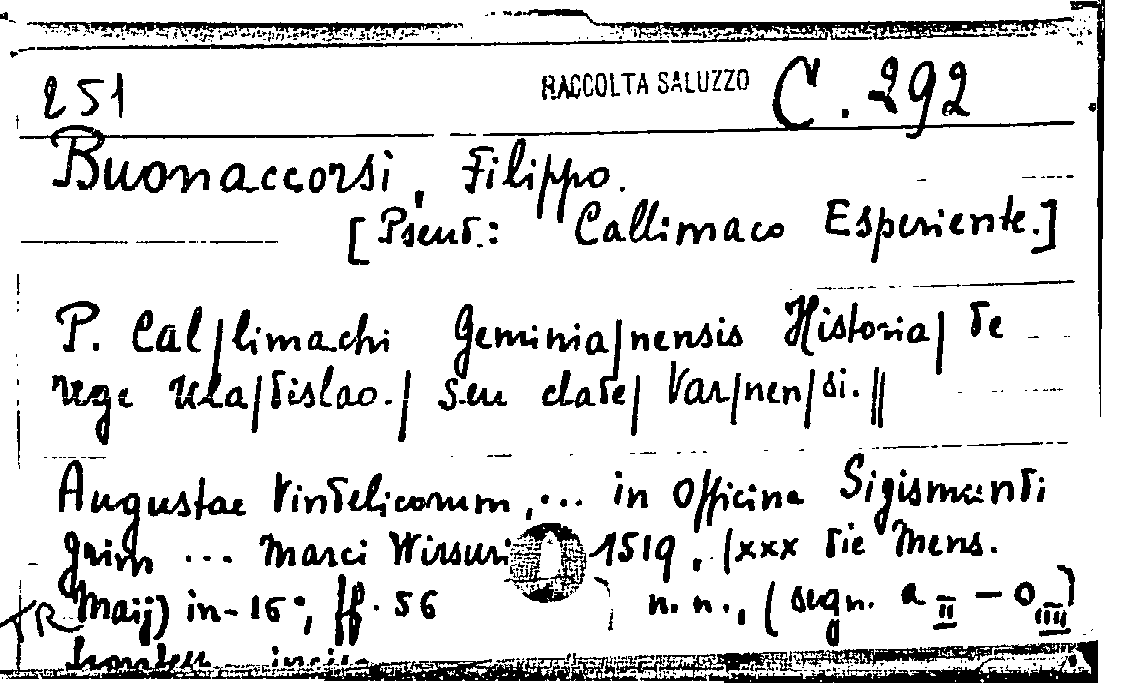 251 RACCOLTA SALUZZO C. 292
Buonaccorsi, Filippo.
[Pseud.: Callimaco Esperiente.]
P. Cal/limachi Geminia/nensis Historia/ de
rege Ula/dislao./ Seu clade/ Var/nen/si.||
Augustae Vindelicorum, ... in Officina Sigismundi
Grim ... Marci Wirsun 1519. (xxx die Mens.
Maij) in-16°, ff. 56 n.n., (segn. a II - o IIII)
TR